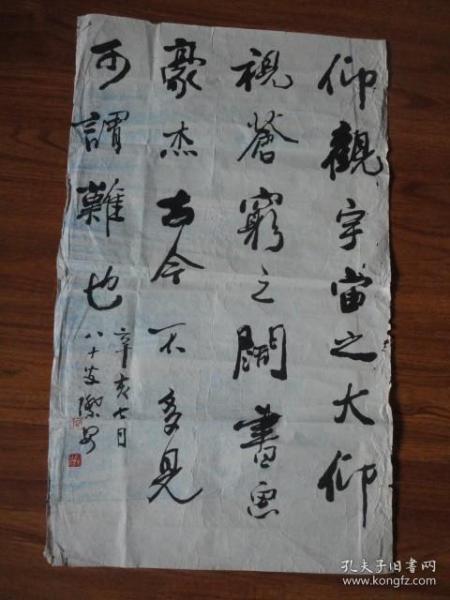 仰觀宇宙之大仰
視蒼窮之闊書画
豪杰古今不多見
可謂難也
辛亥七月
八十叟
孔夫子旧书网
www.kongfz.com